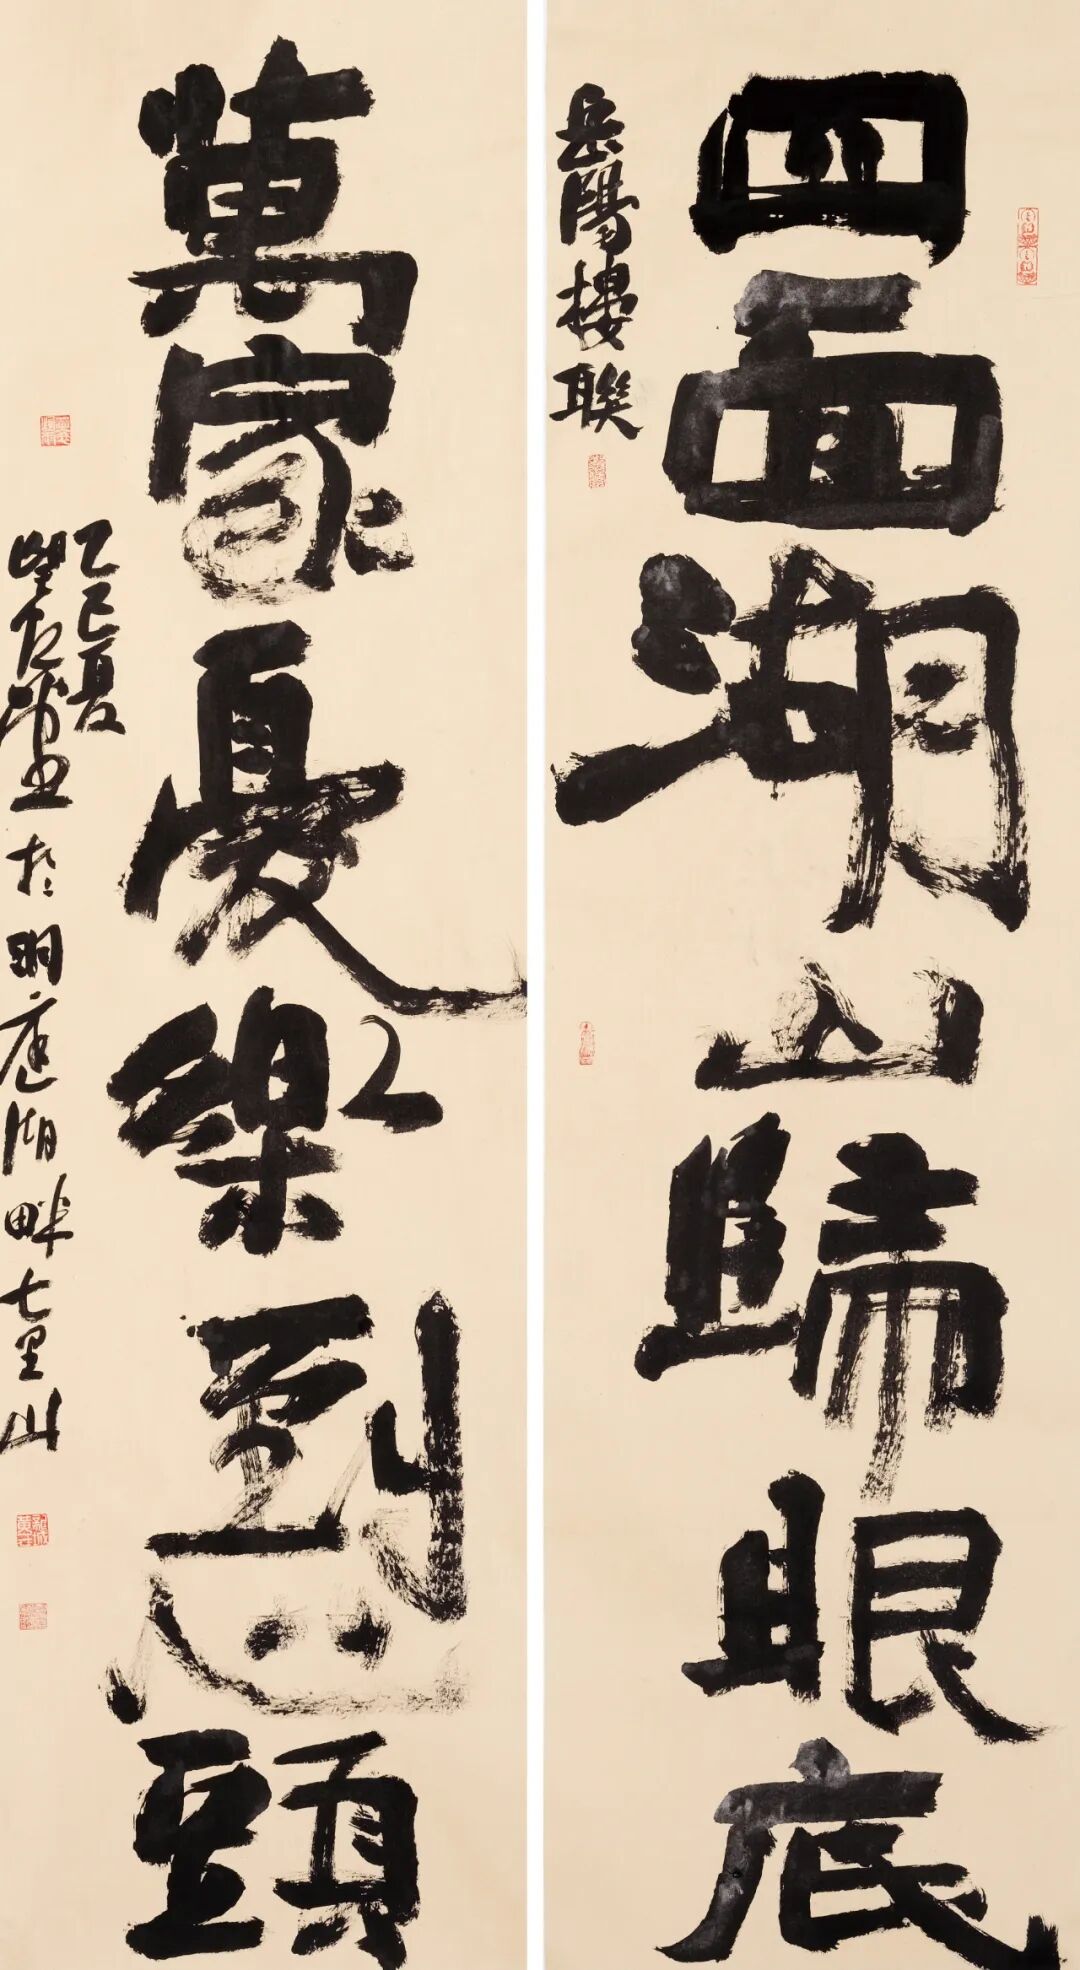 四面湖山歸眼底
岳陽樓聯
萬家憂樂到心頭
乙巳夏
於洞庭湖畔七里山